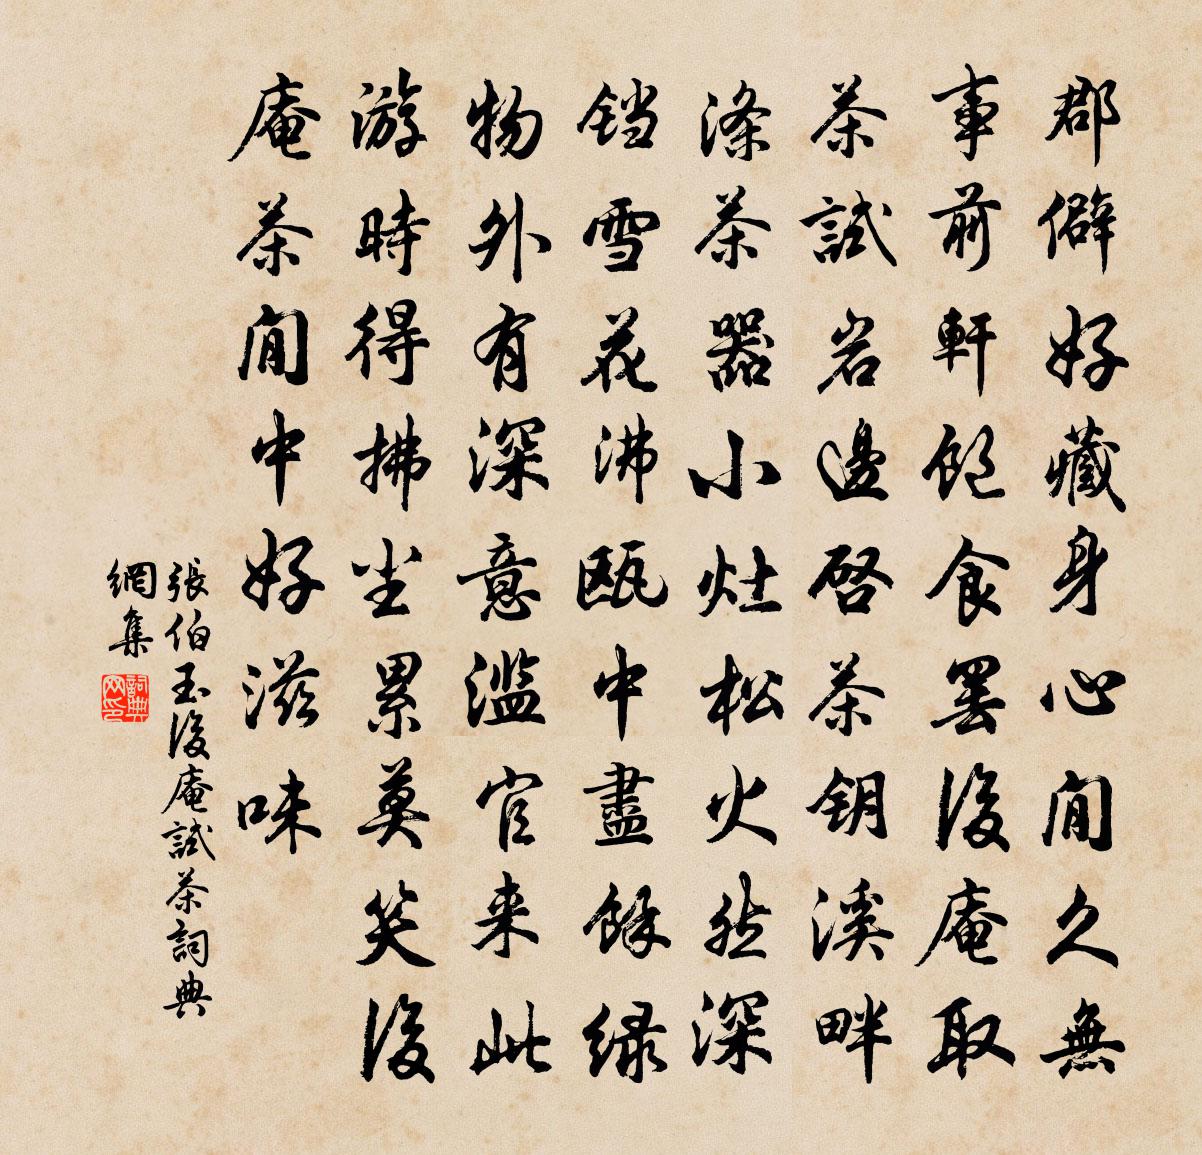 郡僻好藏身心閒久無
事前軒飽食罢後庵取
茶試岩邊啓茶钥溪畔
滌茶器小灶松火然深
铛雪花沸瓯中盡餘绿
物外有深意滥官来此
游時得拂尘累莫笑後
庵茶閒中好滋味
張伯玉後庵試茶詞典
網集
詞典
网印